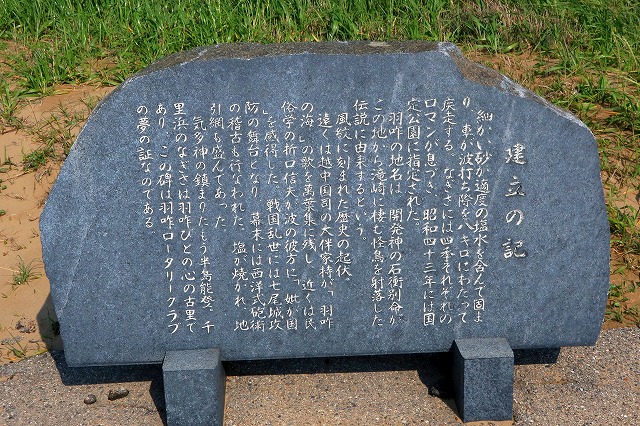 建立の記
細かい砂が適度の塩水を含んで固ま
り、車が波打ち際を八キロにわたって
疾走する。なぎさには四季それぞれの
ロマンが息づき、昭和四十三年には国
定公園に指定された。
羽咋の地名は、開発神の石衝別命が
この地から滝崎に棲む怪鳥を射落した
伝説に由来するという。
風紋に刻まれた歴史の起伏。
遠くは越中国司の大伴家持が「羽咋
の海」の歌を萬葉集に残し、近くは民
俗学の折口信夫が波の彼方に「妣が国
」を感得した。戦国乱世には七尾城攻
防の舞台となり、幕末には西洋式砲術
の稽古も行なわれた。塩が焼かれ、地
引網も盛んであった。
気多神の鎮まりたもう半島能登。千
里浜のなぎさは羽咋びとの心の古里で
あり、この碑は羽咋ロータリークラブ
の夢の証なのである。